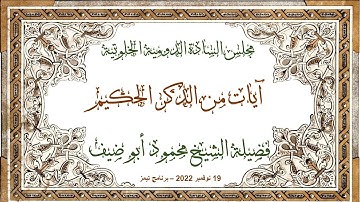 مجلس السادة الدومية الخلوتية
آيات من الذكر الحكيم
فضيلة الشيخ محمود أبو ضيف
19 نوفمبر 2022 – برنامج تيمز